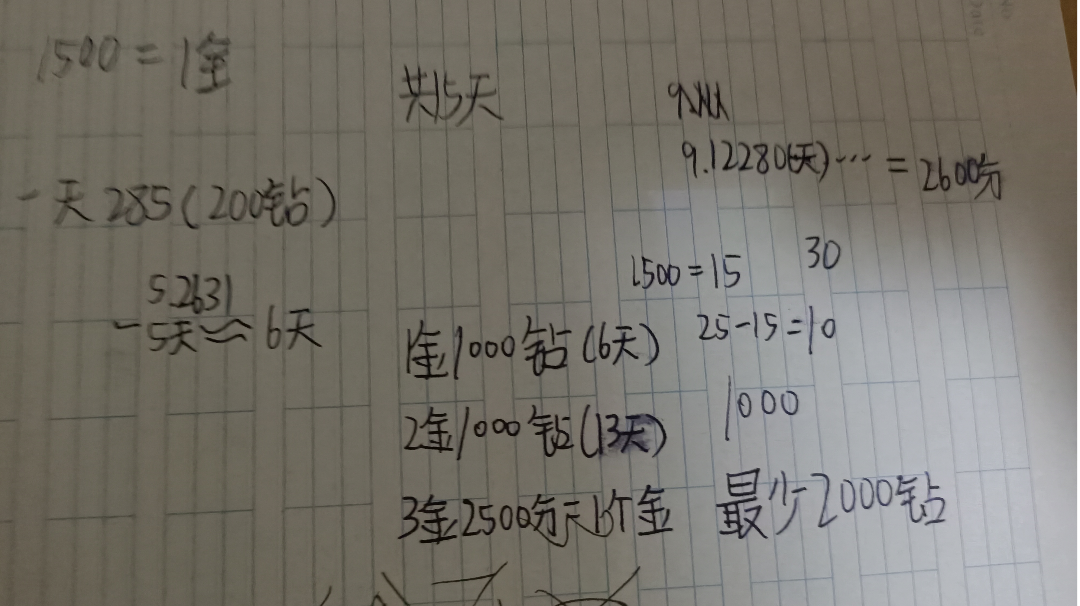 1500=1金
共15天
9.12280(天)…=2600分
一天285(200钻)
1500=15
30
5.2631
5天≈6天
1金1000钻(6天)
25-15=10
2金1000钻(13天)
1000
3金2500分天价金
最少2000钻